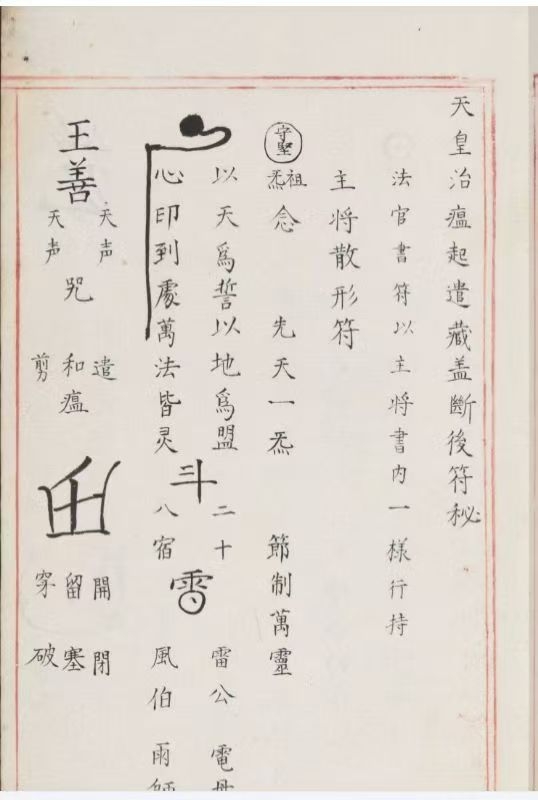 天皇治瘟起遣藏盖斷後符秘
法官書符以主將書内一樣行持
主將散形符
守堅
祖炁
念 先天一炁 節制萬靈
以天爲誓以地爲盟 二十 雷公 電母
心印到處萬法皆灵 斗 八宿 風伯 雨師
王善
天声 天声
咒
遣 和瘟 剪
開 留 穿
閉 塞 破